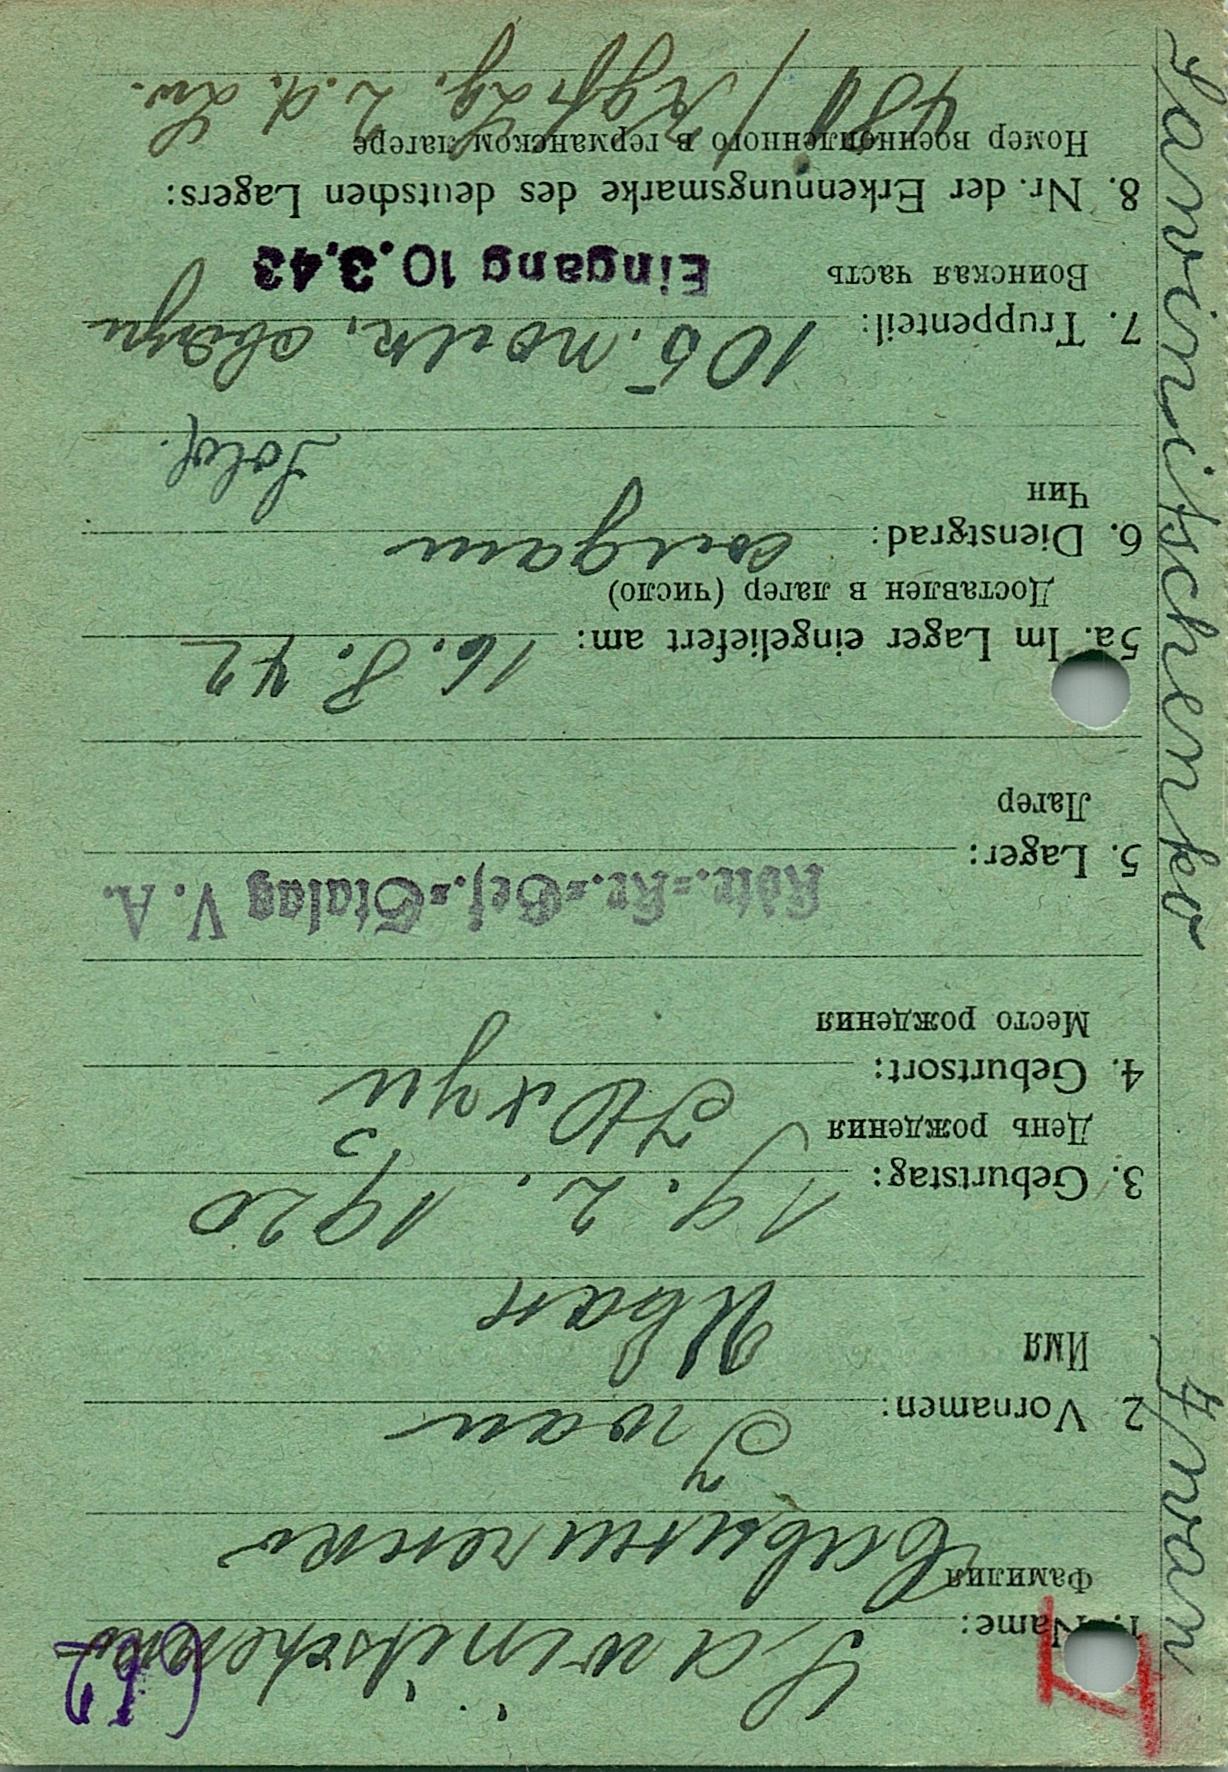 Sawinitschenko Iwan
1. Name: Sawinitschenko
Фамилия Савиниченко
2. Vornamen: Iwan
Имя Иван
3. Geburtstag: 19. 2. 1920
День рождения
4. Geburtsort:
Место рождения
Kdtr.=Kr.=Gef.=Stalag V. A.
5. Lager:
Лагер
5a. Im Lager eingeliefert am: 16. 8. 42
Доставлен в лагер (число)
6. Dienstgrad: солдат
Чин Sold.
7. Truppenteil: 105. полк,
Воинская часть Eingang 10.3.43
8. Nr. der Erkennungsmarke des deutschen Lagers:
Номер военнопленного в германском лагере
/ Kgf. Lg. 2. d. Lw.